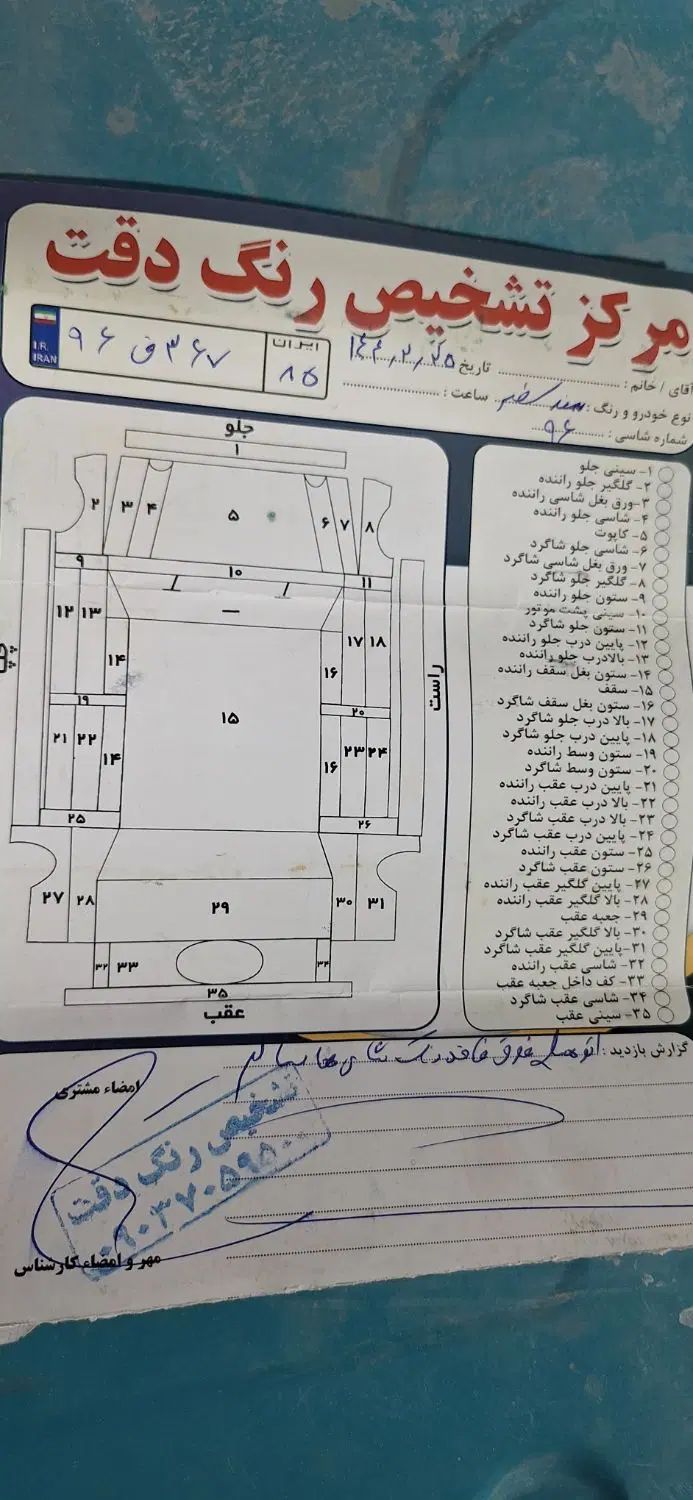 مرکز تشخیص رنگ دقت
I.R. IRAN
۹۶ ق ۳۶۷
ایران
۸۵
تاریخ
آقای / خانم :
نوع خودرو و رنگ : سمند سفید ساعت :
شماره شاسی : ۹۶
جلو
۱
۲ ۳ ۴ ۵ ۶ ۷ ۸
۹ ۱۰ ۱۱
۱۲ ۱۳ ۱۴ ۱۵ ۱۶ ۱۷ ۱۸
۱۹ ۲۰
۲۱ ۲۲ ۱۴ ۱۶ ۲۳ ۲۴
۲۵ ۲۶
۲۷ ۲۸ ۲۹ ۳۰ ۳۱
۳۲ ۳۳ ۳۴
۳۵
عقب
چپ
راست
۱- سینی جلو
۲- گلگیر جلو راننده
۳- ورق بغل شاسی راننده
۴- شاسی جلو راننده
۵- کاپوت
۶- شاسی جلو شاگرد
۷- ورق بغل شاسی شاگرد
۸- گلگیر جلو شاگرد
۹- ستون جلو راننده
۱۰- سینی پشت موتور
۱۱- ستون جلو شاگرد
۱۲- پایین درب جلو راننده
۱۳- بالادرب جلو راننده
۱۴- ستون بغل سقف راننده
۱۵- سقف
۱۶- ستون بغل سقف شاگرد
۱۷- بالا درب جلو شاگرد
۱۸- پایین درب جلو شاگرد
۱۹- ستون وسط راننده
۲۰- ستون وسط شاگرد
۲۱- پایین درب عقب راننده
۲۲- بالا درب عقب راننده
۲۳- بالا درب عقب شاگرد
۲۴- پایین درب عقب شاگرد
۲۵- ستون عقب راننده
۲۶- ستون عقب شاگرد
۲۷- پایین گلگیر عقب راننده
۲۸- بالا گلگیر عقب راننده
۲۹- جعبه عقب
۳۰- بالا گلگیر عقب شاگرد
۳۱- پایین گلگیر عقب شاگرد
۳۲- شاسی عقب راننده
۳۳- کف داخل جعبه عقب
۳۴- شاسی عقب شاگرد
۳۵- سینی عقب
گزارش بازدید : اتومبیل فوق فاقد رنگ شاسی ها سالم
امضاء مشتری
تشخیص رنگ دقت
۰۹۰۳۷۰۵۹۵۰۰
مهر و امضاء کارشناس